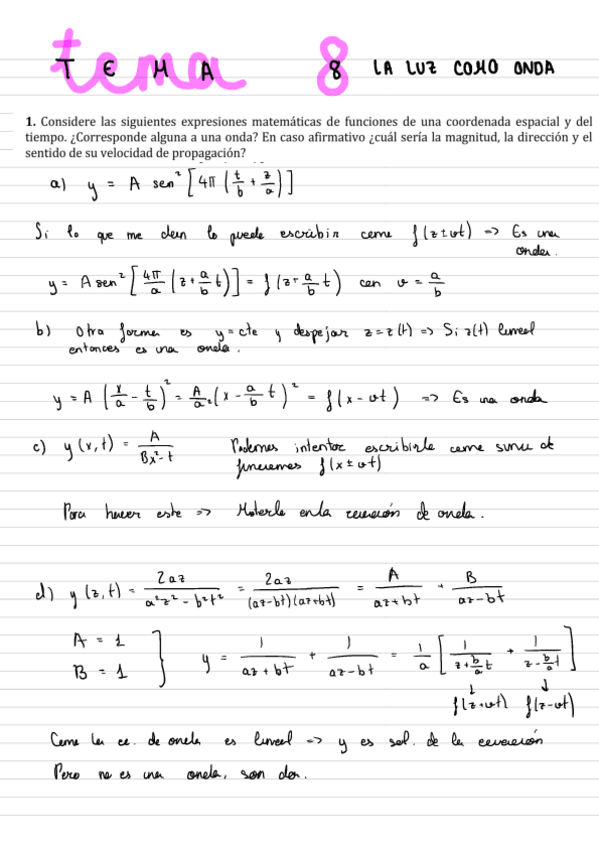 TEMA 8 LA LUZ COMO ONDA
1. Considere las siguientes expresiones matemáticas de funciones de una coordenada espacial y del
tiempo. ¿Corresponde alguna a una onda? En caso afirmativo ¿cuál sería la magnitud, la dirección y el
sentido de su velocidad de propagación?
a) y = A sen² [4π (t/b + z/a)]
Si lo que me dan lo puedo escribir como f(z±vt) => Es una
onda.
y = A sen² [4π/a (z + a/b t)] = f(z + a/b t) con v = a/b
b) Otra forma es y = cte y despejar z = z(t) => Si z(t) lineal
entonces es una onda.
y = A (x/a - t/b)² = A/a² (x - a/b t)² = f(x - vt) => Es una onda
c) y(x,t) = A/(Bx² - t) Podemos intentar escribirlo como suma de
funciones f(x±vt)
Para hacer esto => Meterlo en la ecuación de onda.
d) y(z,t) = 2az/(a²z² - b²t²) = 2az/((az-bt)(az+bt)) = A/(az+bt) + B/(az-bt)
A = 1
B = 1 } y = 1/(az+bt) + 1/(az-bt) = 1/a [1/(z + b/a t) + 1/(z - b/a t)]
↓ ↓
f(z+vt) f(z-vt)
Como la ec. de onda es lineal => y es sol. de la ecuación
Pero no es una onda, son dos.